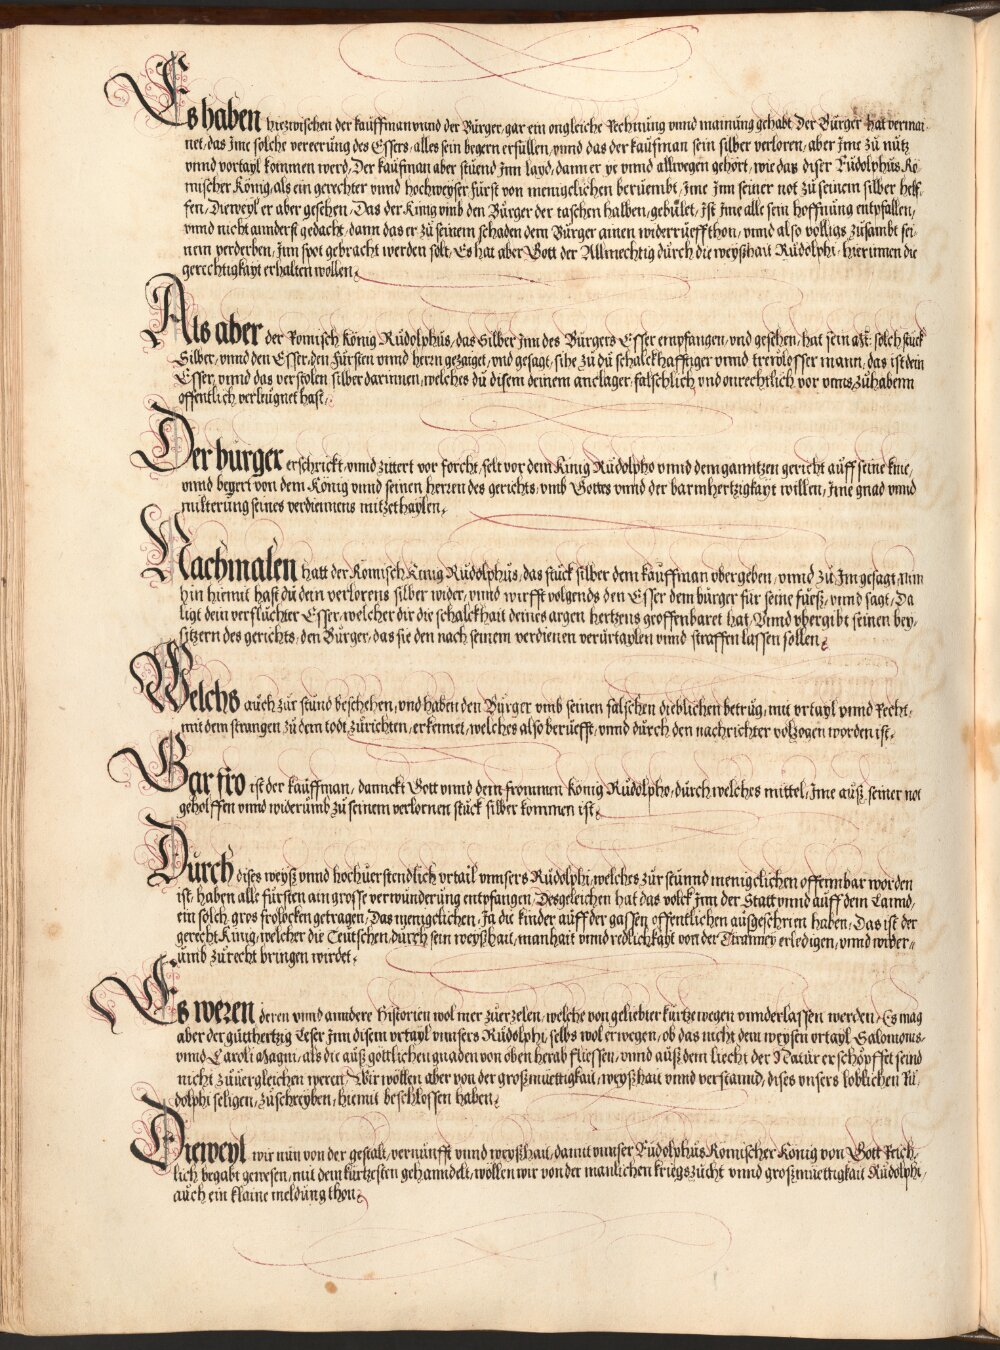 Es haben hiezwischen der kauffman vnnd der Bürger, gar ein ongleiche Rechnung vnnd mainung gehabt. Der Bürger hat vermai
net, das Jme solche vereerung des Essers, alles sein begern erfüllen, vnnd das der kaufman sein silber verloren, aber Jme zu nutz
vnnd vortayl kommen werd, Der kaufman aber stüend Jnn layd, dann er ye vnnd allwegen gehört, wie das diser Rudolphus Rö
mischer König, als ein gerechter vnnd hochweyser fürst von menigclichen berüembt, Jme Jnn seiner not zu seinem silber helf
fen, Dieweyl er aber gesehen, Das der König vmb den Bürger der taschen halben, gebület, Jst Jme alle sein hoffnung entpfallen,
vnnd nicht annderst gedacht, dann das er zu seinem schaden dem Bürger ainen widerrüeff thon, vnnd also völligs zusambt sei
nem verderben, Jnn spot gebracht werden solt, Es hat aber Gott der Allmechtig durch die weyßhait Rudolphi, hierinnen die
gerechtigkayt erhalten wollen,
Als aber der Römisch König Rudolphus, das Silber Jnn des Bürgers Esser empfangen, vnd gesehen, hat sein Mt: solch stuck
Silber, vnnd den Esser, den Fürsten vnnd herrn gezaiget, vnd gesagt, sihe zu du schalckhafftiger vnnd trewlosser mann, das ist dein
Esser, vnnd das verstolen silber darinnen, welches du disem deinem anclager, falschlich vnd onrechtlich vor vnns, zuhabenn
offentlich verleugnet hast,
Der burger erschrickt, vnnd zittert vor forcht, felt vor dem König Rudolpho vnnd dem ganntzen gericht auff seine knie,
vnnd begert von dem König vnnd seinen herren des gerichts, vmb Gottes vnnd der barmhertzigkayt willen, Jme gnad vnnd
milterung seines verdienens mitzethaylen,
Nachmalen hatt der Römisch König Rudolphus, das stuck silber dem kauffman vbergeben, vnnd zu Jm gesagt, nim
hin hiemit hast du dein verlorens silber wider, vnnd wirfft volgends den Esser dem burger für seine füeß, vnnd sagt, Da
ligt dein verfluchter Esser, welcher dir die schalckhait deines argen hertzens geoffenbaret hat, Vnnd vbergibt seinen bey,
sitzern des gerichts, den Bürger, das sie den nach seinem verdienen verurtaylen vnnd straffen lassen sollen,
Welchs auch zur stund beschehen, vnd haben den Bürger vmb seinen falschen dieblichen betrug, mit vrtayl vnnd Recht,
mit dem strangen zu dem todt zurichten, erkennet, welches also berüefft, vnnd durch den nachrichter volzogen worden ist,
Gar fro ist der kauffman, dannckt Gott vnnd dem frommen König Rudolpho, durch welches mittel, Jme auß seiner not
geholffen vnnd widerumb zu seinem verlornen stuck silber kommen ist,
Durch dises weyß vnnd hochuerstendlich vrtail vnnsers Rudolphi, welches zur stunnd menigclichen offennbar worden
ist, haben alle fürsten ain grosse verwunderung entpfangen, Desgeleichen hat das volck Jnn der Statt vnnd auff dem Lannd,
ein solch gros frolocken getragen, Das menigclichen, Ja die kinder auff der gassen offentlichen ausgeschrien haben, Das ist der
gerecht König, welcher die Teutschen durch sein weyßhait, manhait vnnd redlichkayt von der Tirannei erledigen, vnnd wider,,
umb zu recht bringen wirdet,
Es weren deren vnnd anndere historien wol mer zuerzelen, welche von geliebter kurtze wegen vnnderlassen werden, Es mag
aber der gutthertzig Leser Jnn disem vrtayl vnnsers Rudolphi, selbs wol erwegen, ob das nicht dem weysen vrtayl Salomonis,
vnnd Caroli Magni, als die auß gottlichen gnaden von oben herab fliessen, vnnd auß dem liecht der Natur erschöpffet seind
nicht zuuergleichen weren, Wir wöllen aber von der großmüettigkait, weyßhait vnnd verstannd, dises vnsers loblichen Ru
dolphi seligen, zuschreyben, hiemit beschlossen haben,
Dieweyl wir nun von der gestalt, vernunfft vnnd weyßhait, damit vnnser Rudolphus Römischer König von Gott Reich,
lich begabt gewesen, mit dem kurtzesten gehanndelt, wöllen wir von der manlichen kriegszucht vnnd großmüettigkait Rudolphi,
auch ein klaine meldung thon,